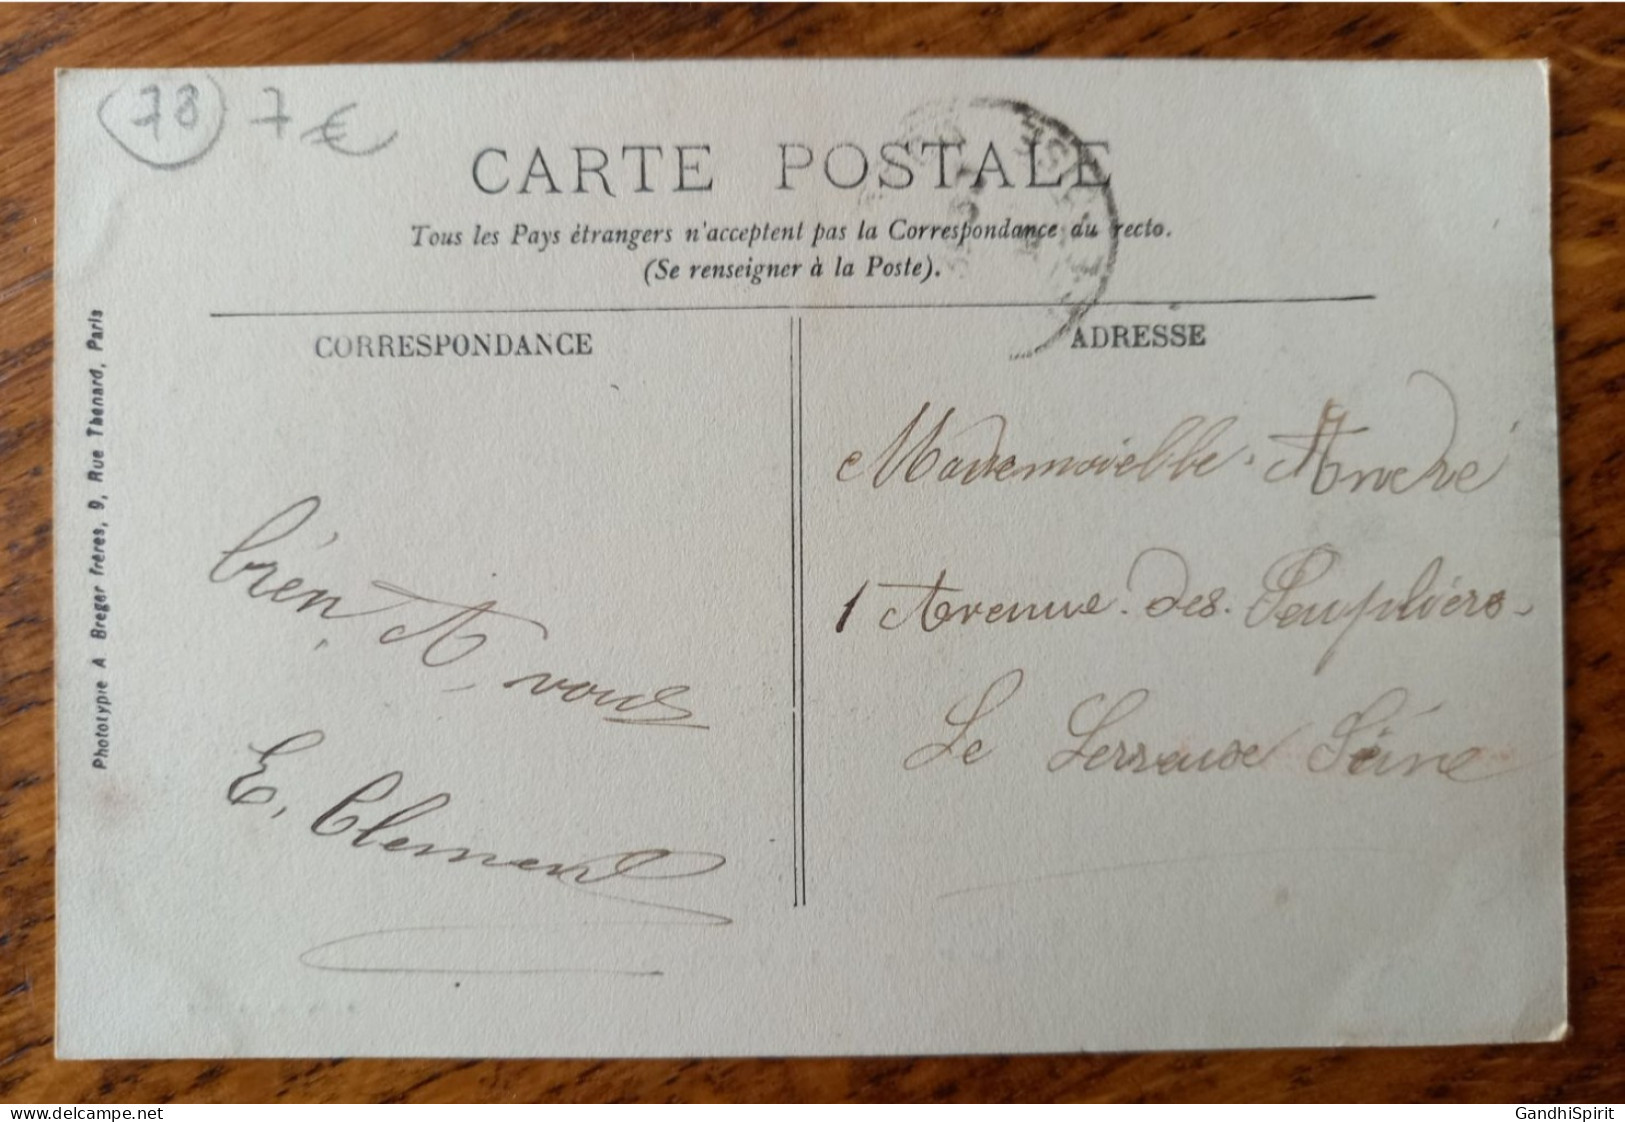 78 7 €
CARTE POSTALE
Tous les Pays étrangers n'acceptent pas la Correspondance du recto.
(Se renseigner à la Poste).
CORRESPONDANCE
ADRESSE
Phototypie A Breger frères, 9, Rue Thenard, Paris
bien A vous
E. Clement
Mademoiselle André
1 Avenue des Peupliers
Le Perreux Seine
delcampe.net
GandhiSpirit